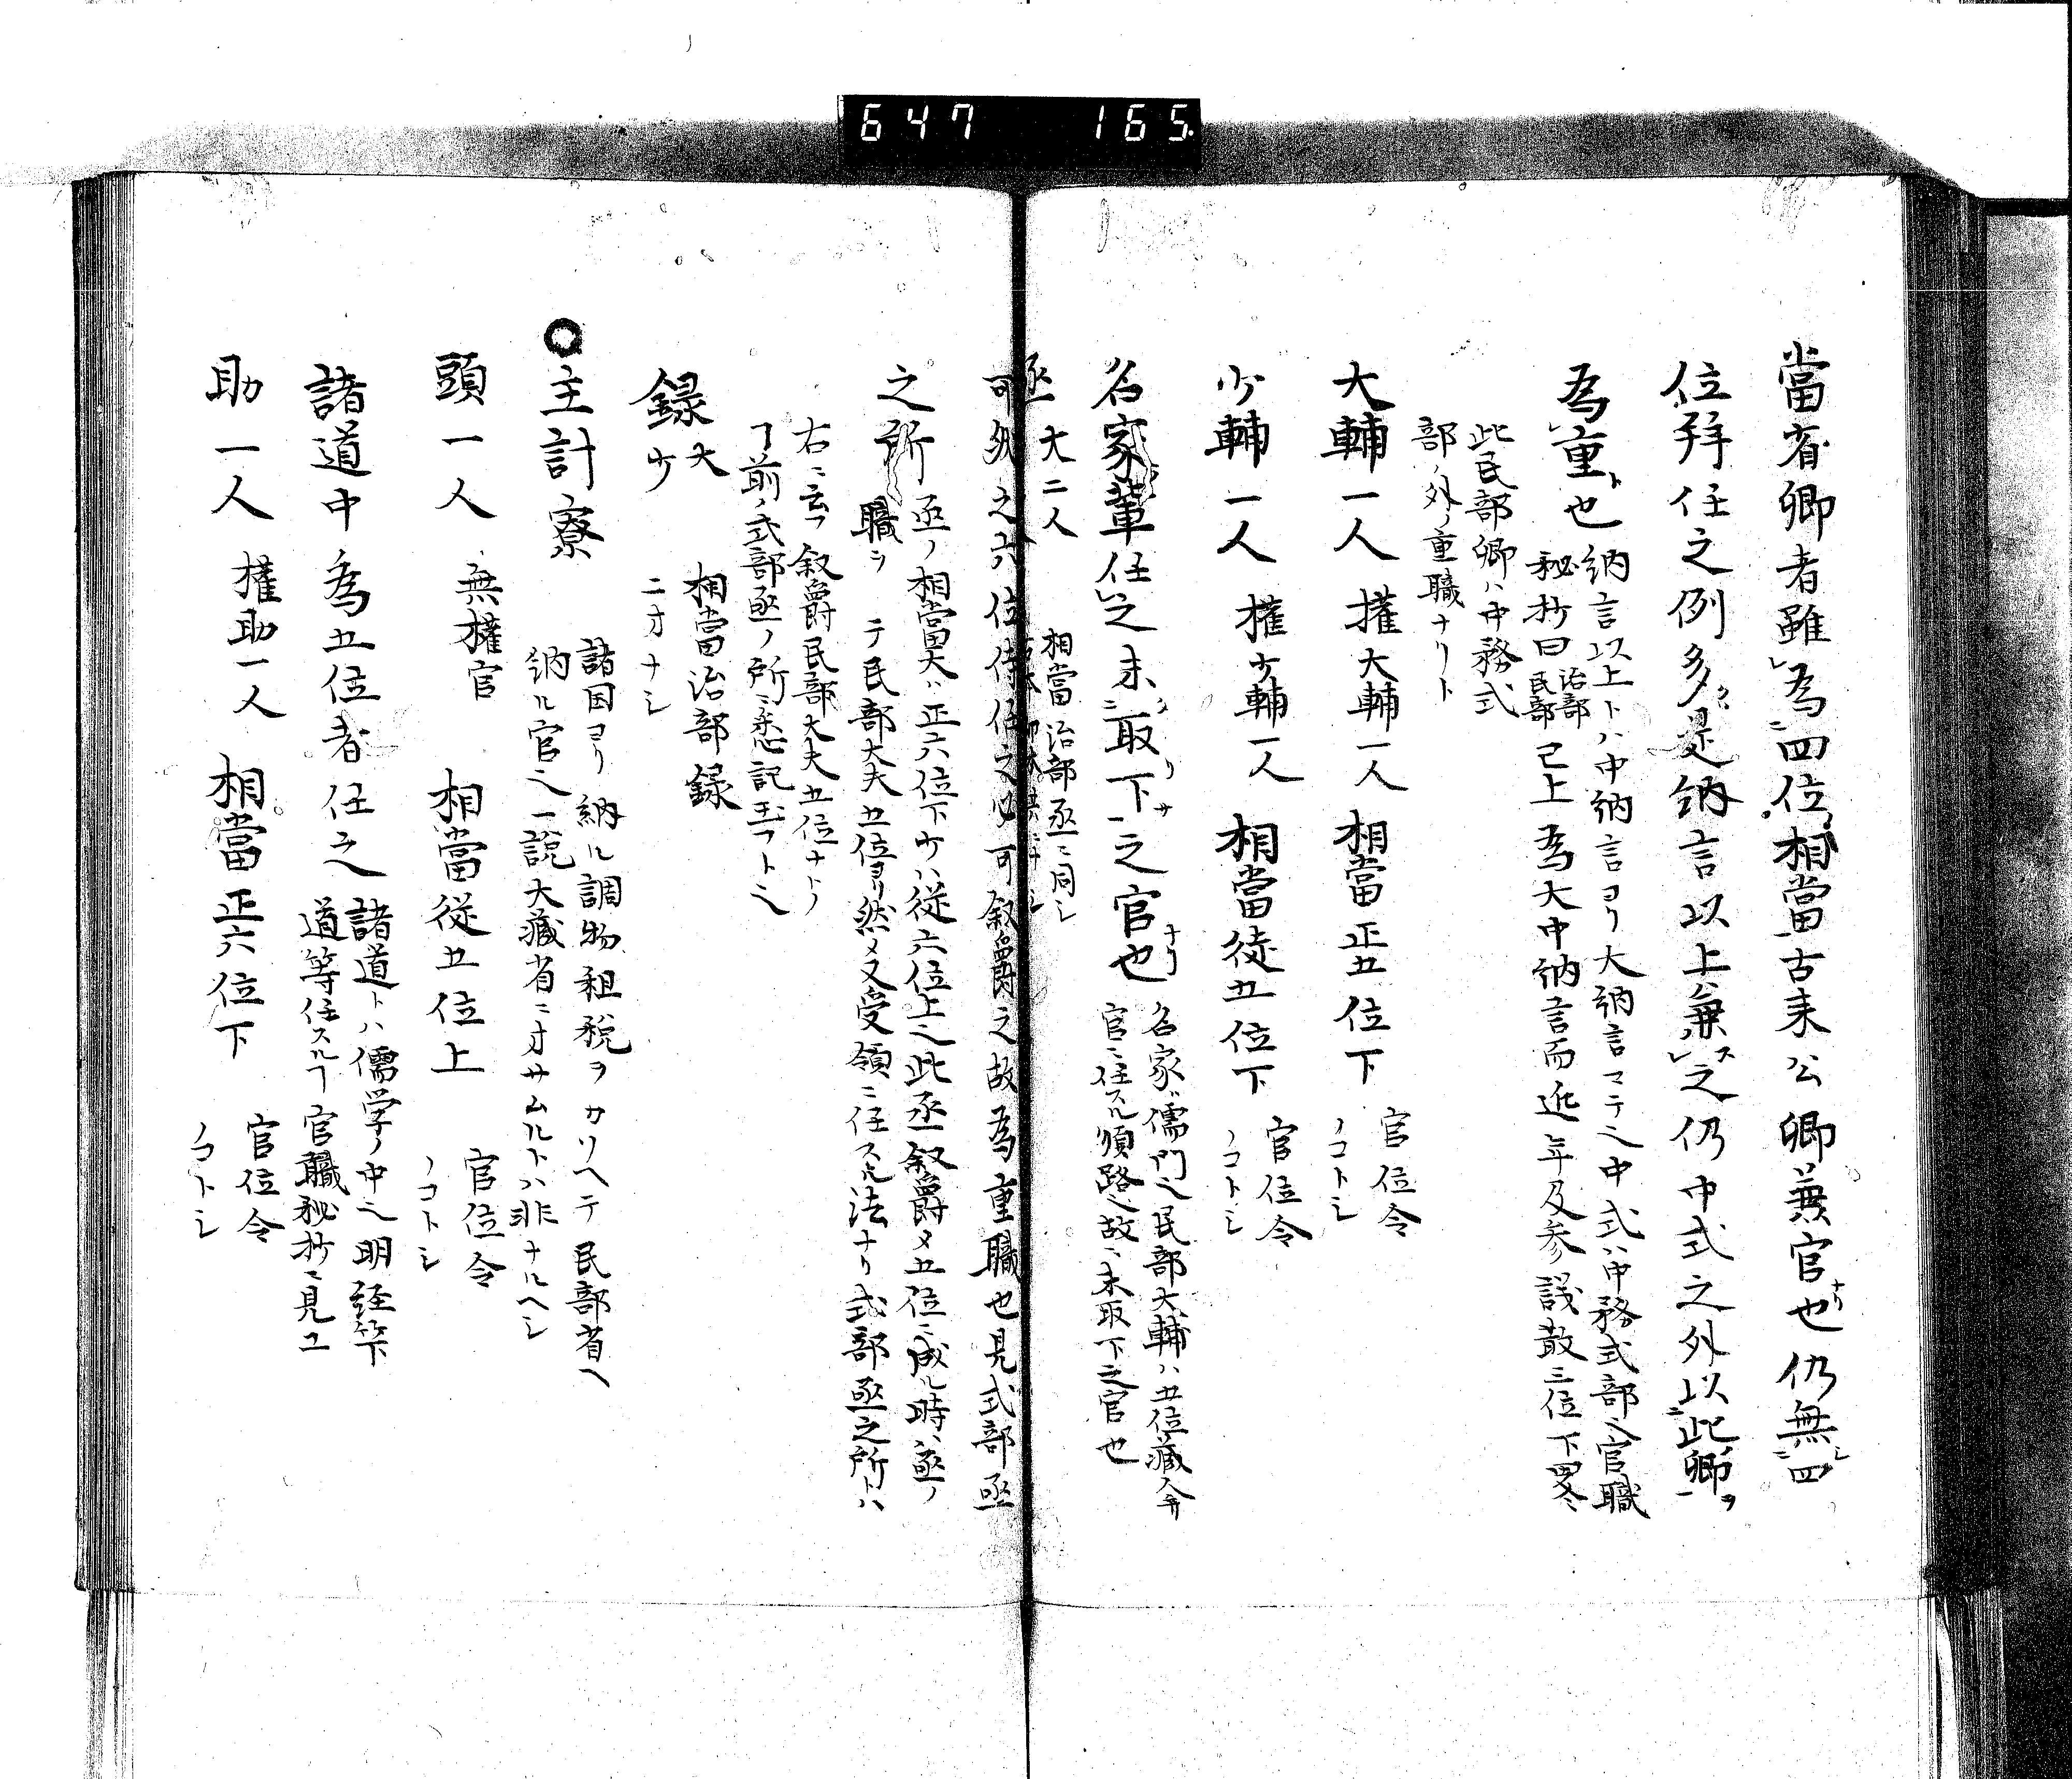 647 165
當省卿者雖為四位相當古来公卿兼官也仍無四
位拜任之例多是納言以上兼之仍中式之外以此卿
為重也
納言以上トハ中納言ヨリ大納言マテ也中式ハ中務式部也官職
秘抄曰治部民部已上為大中納言而近年及参議散三位下畧
此民部卿ハ中務式
部ノ外ノ重職ナリト
大輔一人 權大輔一人 相當正五位下 官位令
ノコトシ
少輔一人 權少輔一人 相當従五位下 官位令
ノコトシ
名家輩任之未取下之官也
名家ハ儒門也民部大輔ハ五位蔵人弁
官ニ任スル順路也故ニ未取下之官也
丞 大二人
相當治部丞ニ同シ
之六位侍任之必可叙爵之故為重職也見式部丞
之所
丞ノ相當大ハ正六位下少ハ従六位上也此丞叙爵〆五位ニ成ル時ハ丞ノ
職ヲ テ民部大夫五位ヨリ然〆又受領ニ任スル法ナリ式部丞之所トハ
右ニ云フ叙爵民部大夫五位ナトノ
ヿ前ノ式部丞ノ所ニ悉記玉フト也
録 大少 相當治部録
ニオナシ
主計寮
諸国ヨリ納ル調物租税ヲカソヘテ民部省ヘ
納ル官也一説大蔵省ニオサムルトハ非ナルヘシ
頭一人 無權官 相當従五位上 官位令
ノコトシ
諸道中為五位者任之
諸道トハ儒学ノ中也明経筭
道等任スルヿ官職秘抄ニ見ユ
助一人 權助一人 相當正六位下 官位令
ノコトシ